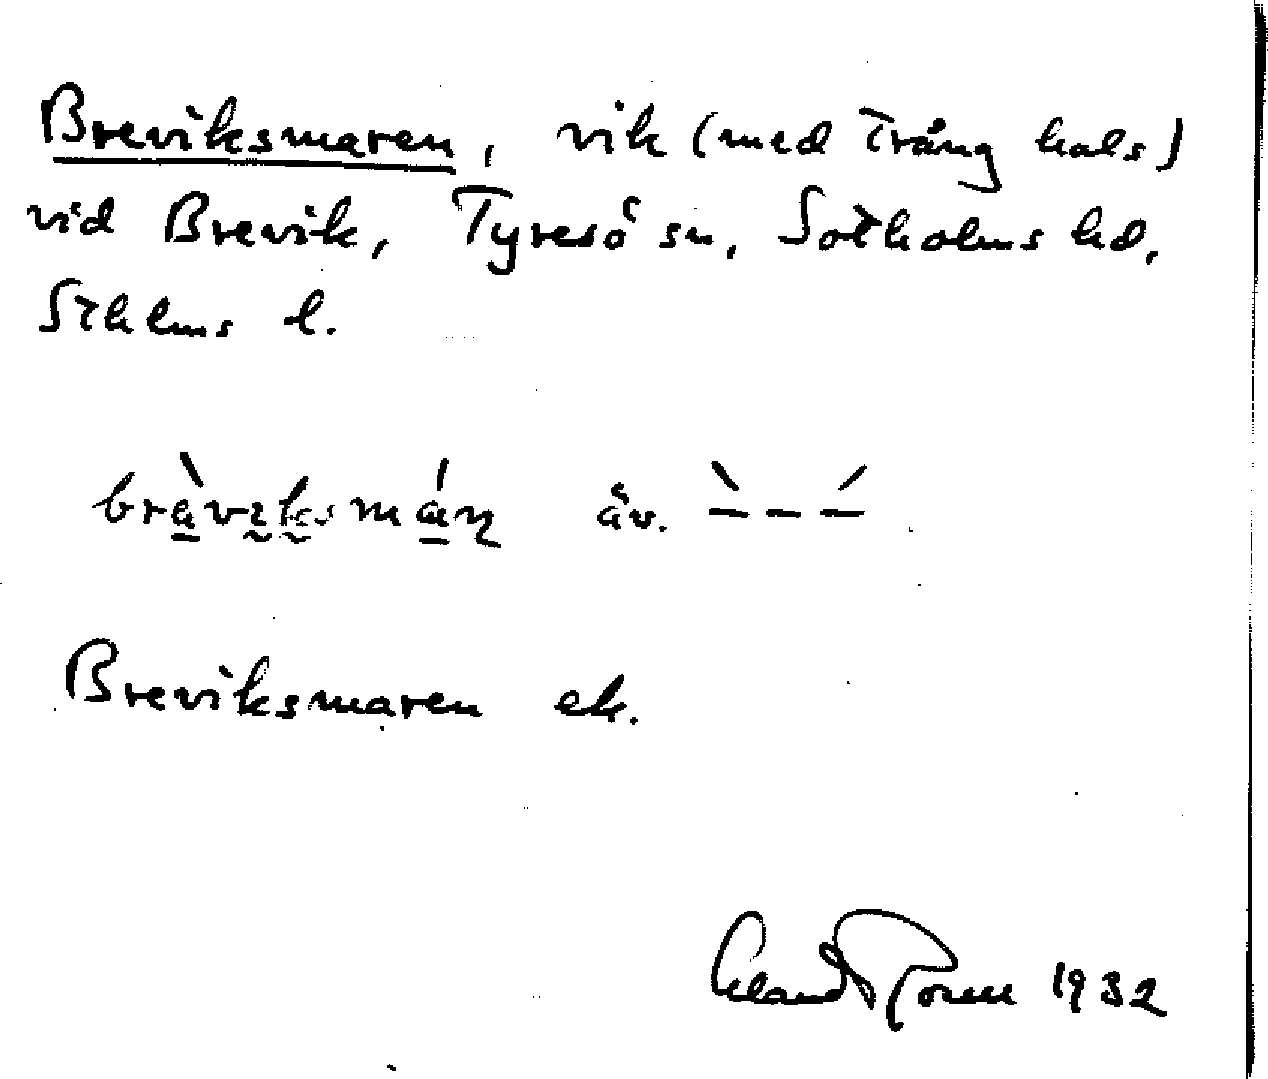 Breviksmaren, vik (med trång hals)
vid Brevik, Tyresö sn, Sotholms hd,
Sthlms l.
äv. – – –
Breviksmaren ek.
1932